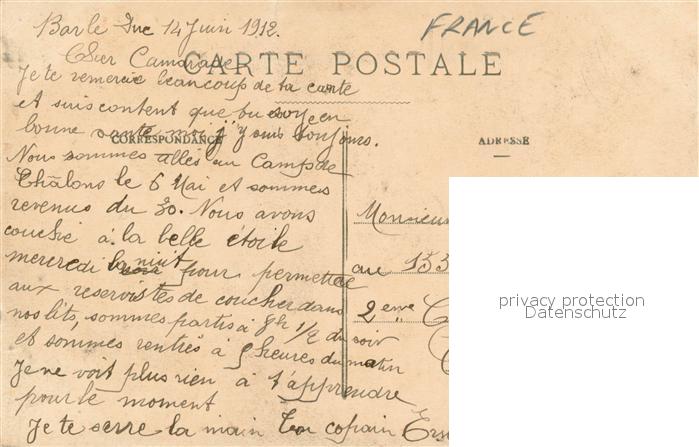 Bar le Duc 14 Juin 1912.
FRANCE
Cher Camarade
CARTE POSTALE
Je te remercie beaucoup de ta carte
et suis content que tu soye en
bonne santé moi j'y suis toujours.
CORRESPONDANCE
ADRESSE
Nous sommes allés au Camp de
Châlons le 6 Mai et sommes
revenus du 30. Nous avons
couché à la belle étoile
mercredi la nuit pour permettre
aux reservistes de coucher dans
nos lits, sommes partis à 8h 1/2 du soir
et sommes rentrés à 9 heures du matin
Je ne voit plus rien à t'apprendre
pour le moment
Je te serre la main Ton copain
Monsieur
au 153
2eme C
privacy protection
Datenschutz